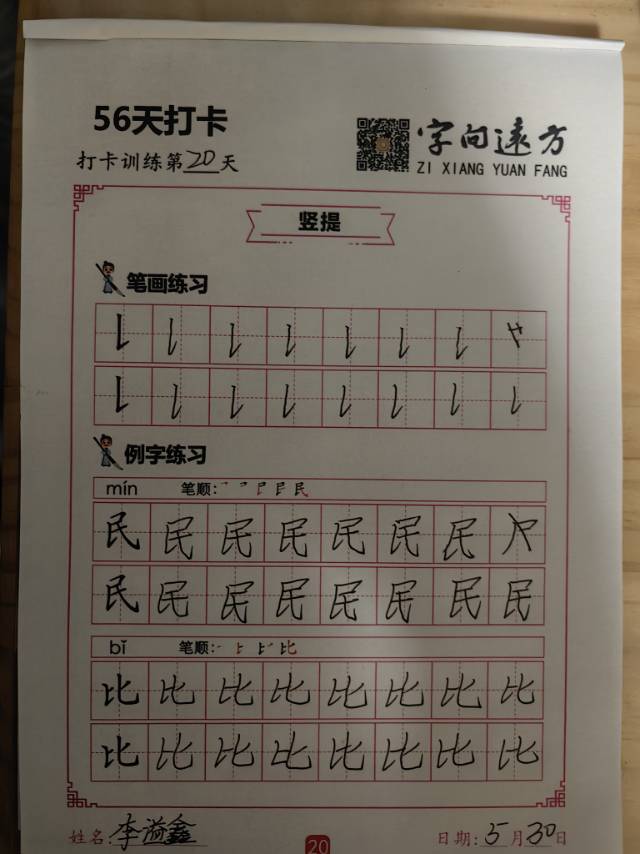 56天打卡
打卡训练第20天
字向远方
ZI XIANG YUAN FANG
竖提
笔画练习
例字练习
mín 笔顺:
民 民 民 民 民 民 民
民 民 民 民 民 民 民 民
bǐ 笔顺:
比 比 比 比 比 比 比 比
比 比 比 比 比 比 比 比
姓名:李溢鑫
20
日期:5月30日